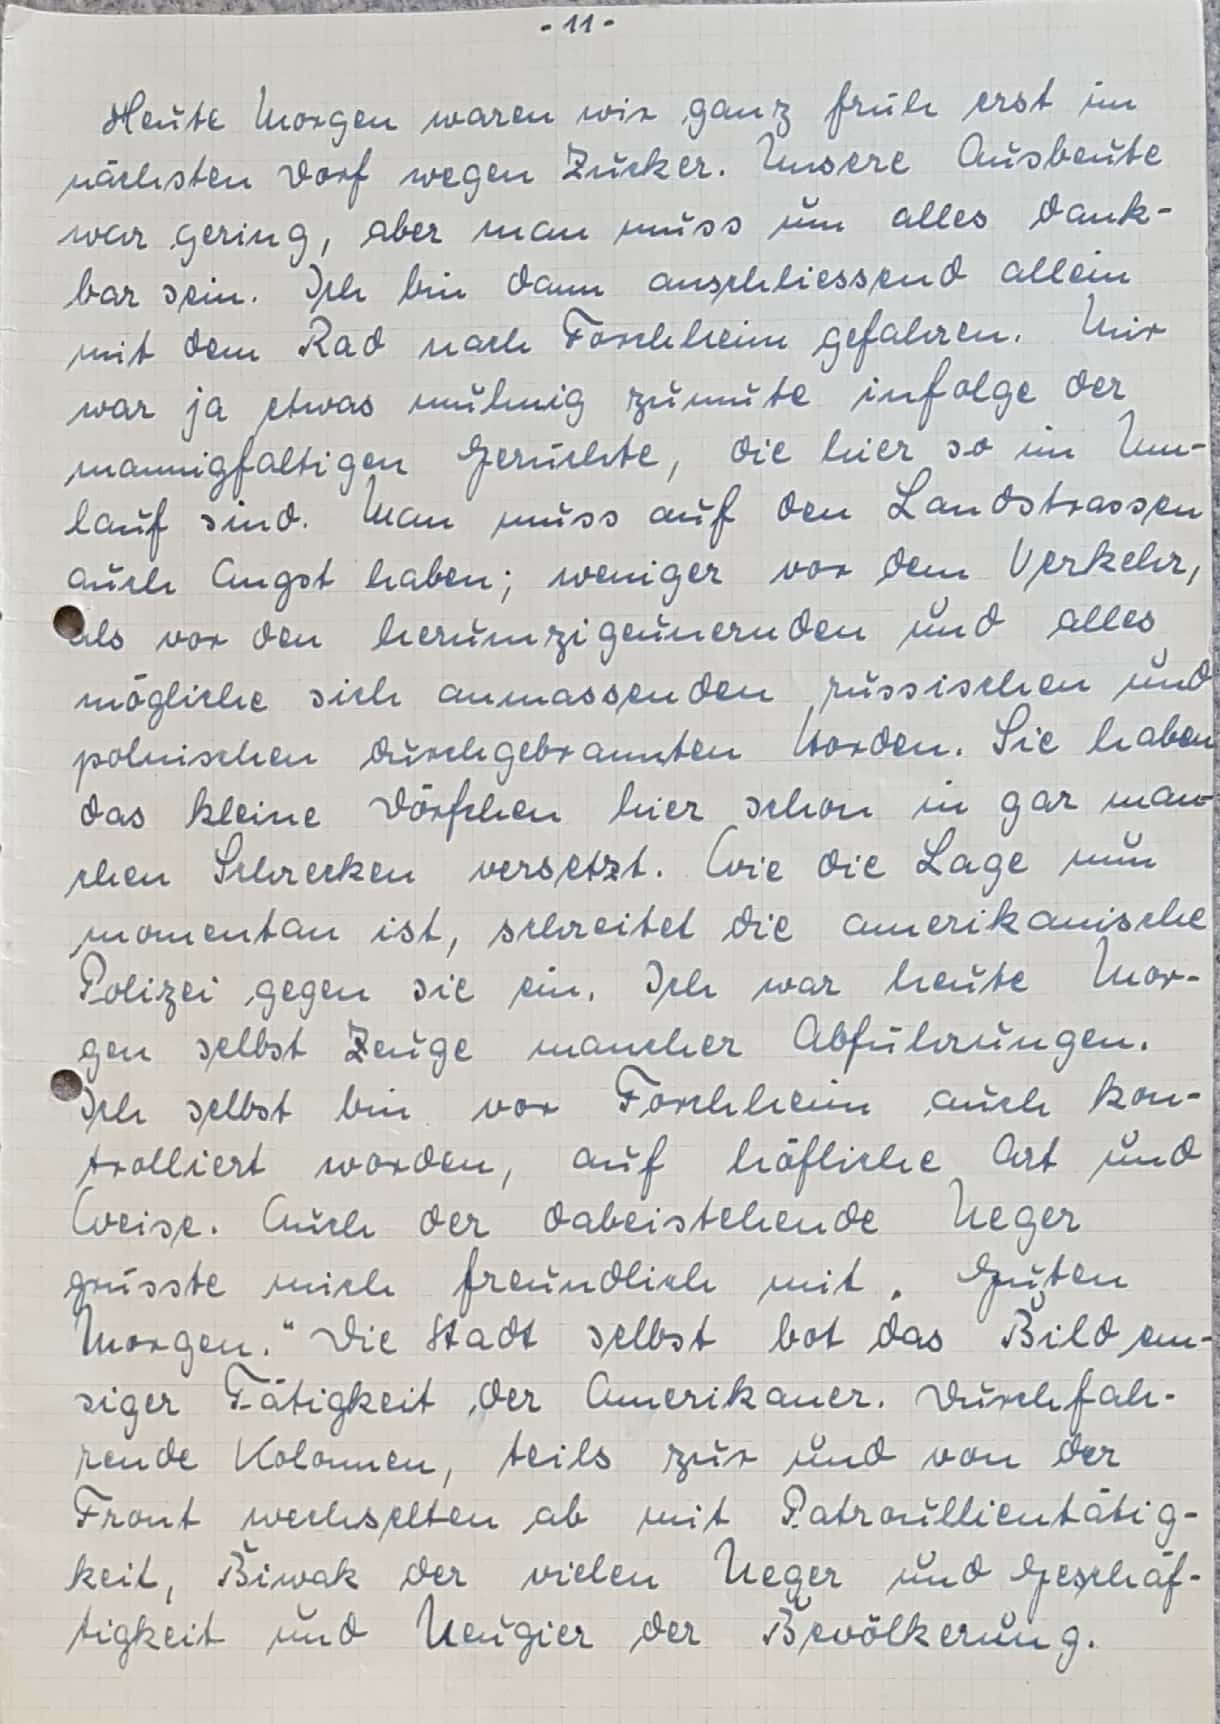 - 11 -
Heute Morgen waren wir ganz früh erst im
nächsten Dorf wegen Zucker. Unsere Ausbeute
war gering, aber man muss um alles dank-
bar sein. Ich bin dann anschliessend allein
mit dem Rad nach Forchheim gefahren. Mir
war ja etwas mulmig zumute infolge der
mannigfaltigen Gerüchte, die hier so im Um-
lauf sind. Man muss auf den Landstrassen
auch Angst haben; weniger vor dem Verkehr,
als vor den herumzigeunernden und alles
mögliche sich anmassenden russischen und
polnischen durchgebrannten Horden. Sie haben
das kleine Dörfchen hier schon in gar man-
chen Schrecken versetzt. Wie die Lage nun
momentan ist, schreitet die amerikanische
Polizei gegen sie ein. Ich war heute Mor-
gen selbst Zeuge mancher Abführungen.
Ich selbst bin vor Forchheim auch kon-
trolliert worden, auf höfliche Art und
Weise. Auch der dabeistehende Neger
grüsste mich freundlich mit „Guten
Morgen." Die Stadt selbst bot das Bild em-
siger Tätigkeit der Amerikaner. Durchfah-
rende Kolonnen, teils zur und von der
Front wechselten ab mit Patroullientätig-
keit, Biwak der vielen Neger und Geschäf-
tigkeit und Neugier der Bevölkerung.